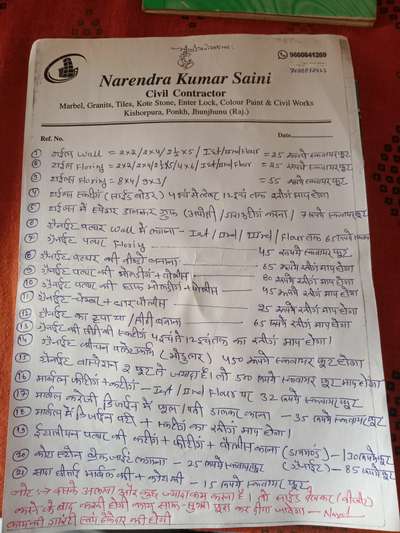 9660641269
Narendra Kumar Saini
Civil Contractor
Marbel, Granits, Tiles, Kote Stone, Enter Lock, Colour Paint & Civil Works
Kishorpura, Ponkh, Jhunjhunu (Raj.)
Ref. No. Date
① टाईल्स Wall = 2x2/2x4/2½x5/Ist/IInd Floor = 25 रूपये स्क्वायर फूट
② टाईल्स Floring = 2x2/2x4/2½x5/4x6/Ist/IInd Floor = 25 रूपये स्क्वायर फूट
③ टाईल्स Floring = 8x4/9x3/ = 35 रूपये स्क्वायर फूट
④ टाईल्स स्कर्टीग (साईड बोर्डर) 4 इंच से लेकर 12 इंच तक रनिंग माप होगा
⑤ टाईल्स में स्पेशर डालकर ग्रुफ / 7 रूपये स्क्वायर फूट
⑥ ग्रेनाईट पत्थर Wall में लगाना - Ist/IInd/IIIrd/Floor तक 65 रूपये स्क्वायर फूट
⑦ ग्रेनाईट पत्थर Floring 45 रूपये स्क्वायर फूट
⑧ ग्रेनाईट पत्थर की बनाना 65 रूपये रनींग माप होगा
⑨ ग्रेनाईट पत्थर की मोल्डींग + पोलीस 80 रूपये रनींग माप होगा
⑩ ग्रेनाईट पत्थर की हाफ मोल्डींग + पोलीस 45 रूपये रनींग माप होगा
⑪ ग्रेनाईट + धार पोलीस 25 रूपये रनींग माप होगा
⑫ ग्रेनाईट का बनाना 65 रूपये रनींग माप होगा
⑬ ग्रेनाईट की सीढी की स्कर्टीग 4 इंच से 12 इंच तक का रनींग माप होगा
⑭ ग्रेनाईट कीचन प्लेटफोर्म 450 रूपये स्क्वायर फूट होगा
⑮ ग्रेनाईट 2 फूट से ज्यादा है तो 500 रूपये स्क्वायर फूट माप होगा
⑯ मार्बल फीटींग + कटींग - Ist/IInd Floor पर 32 रूपये स्क्वायर फूट
⑰ मार्बल में डिजाईन में फूल/पती डालकर लगाना - 35 रूपये स्क्वायर फूट
⑱ मार्बल में डिजाईन पट्टी + स्कर्टीग का रनींग माप होगा
⑲ ईटालीयन पत्थर की कटींग + फीटींग + पोलीस लगाना - 130 रूपये स्क्वायर फूट
⑳ कोटा स्टोन लगाना - 25 रूपये स्क्वायर फूट - 85 रूपये स्क्वायर फूट
㉑ मार्बल की + कोटा की - 15 रूपये स्क्वायर फूट
नोट :- इसके अलावा और कुछ ज्यादा काम करना है। तो साईड देखकर
करने के बाद काम साफ-सुथरा पूरा कर दिया जायेगा
काम की गारंटी होगी